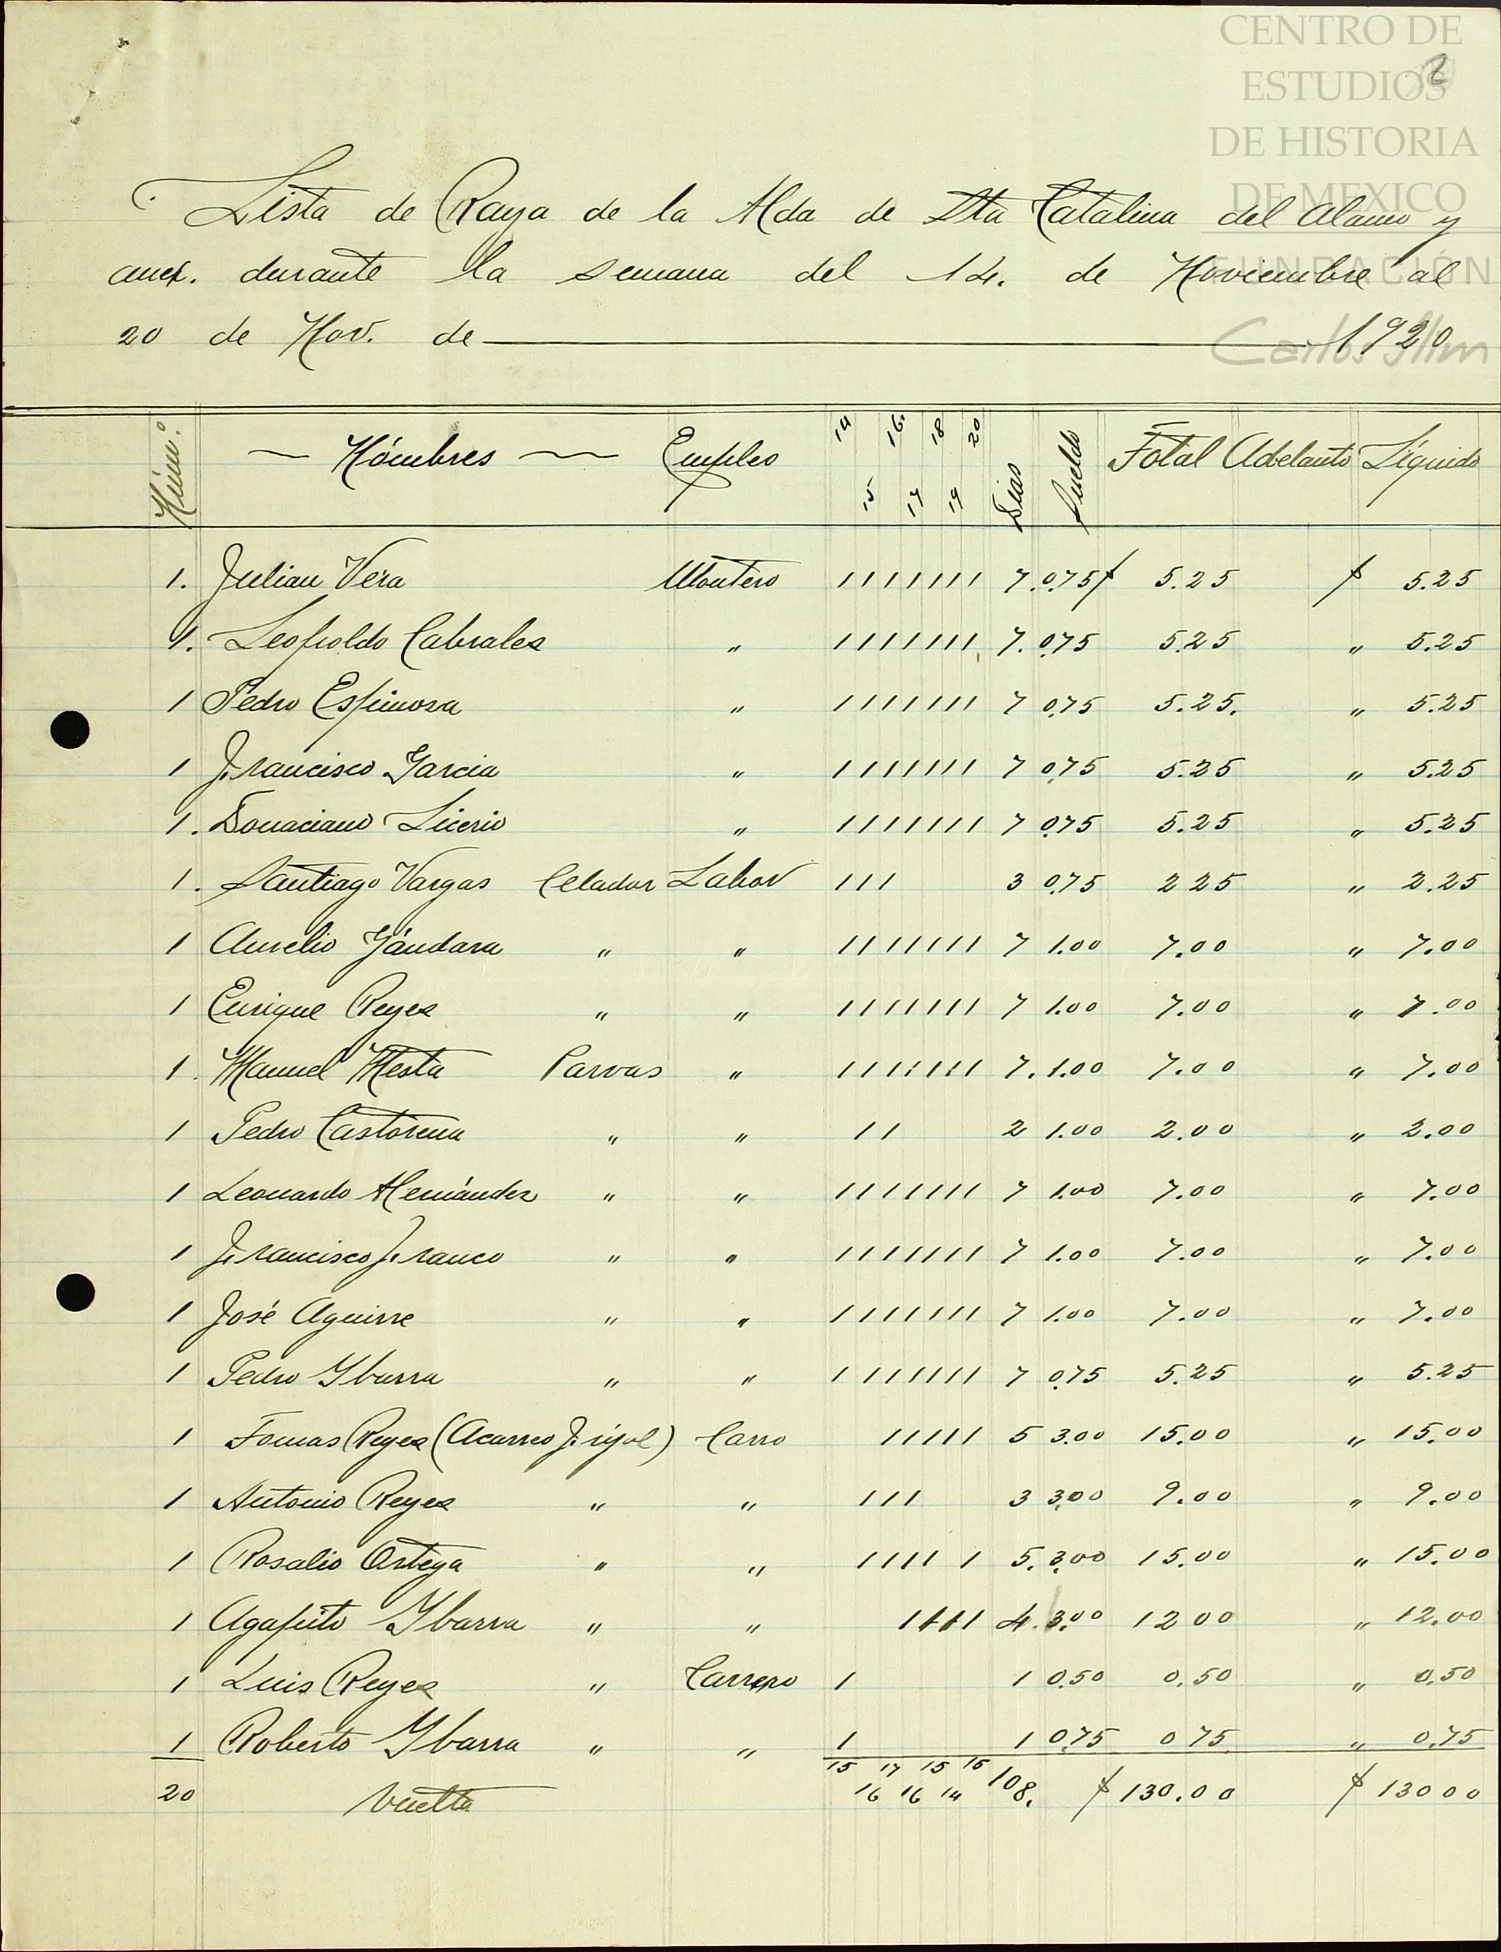 CENTRO DE
ESTUDIOS
DE HISTORIA
DE MEXICO
FUNDACIÓN
Carlos Slim
2
Lista de Raya de la Hda de Sta Catalina del Alamo y
anex. durante la semana del 14. de Noviembre al
20 de Nov. de 1920
Núm: Nómbres Empleo 14 15 16. 17 18 19 20 Dias Sueldo Total Adelanto Líquido
1. Julian Vera Montero 1111111 7. 0.75 $ 5.25 $ 5.25
1. Leopoldo Cabrales " 1111111 7. 0.75 5.25 " 5.25
1 Pedro Espinosa " 1111111 7 0.75 5.25. " 5.25
1 Francisco Garcia " 1111111 7 0.75 5.25 " 5.25
1. Donaciano Licerio " 1111111 7 0.75 5.25 " 5.25
1. Santiago Vargas Celador Labor 111 3 0.75 2 25 " 2.25
1 Aurelio Gándara " " 1111111 7 1.00 7.00 " 7.00
1 Enrique Reyes " " 1111111 7 1.00 7.00 " 7.00
1. Manuel Mesta Parvas " 1111111 7. 1.00 7.00 " 7.00
1 Pedro Castorena " " 11 2 1.00 2.00 " 2.00
1 Leonardo Hernández " " 1111111 7 1.00 7.00 " 7.00
1 Francisco Franco " " 1111111 7 1.00 7.00 " 7.00
1 José Aguirre " " 1111111 7 1.00 7.00 " 7.00
1 Pedro Ybarra " " 1111111 7 0.75 5.25 " 5.25
1 Tomas Reyes (Acarreo Frijol) Carro 11111 5 3.00 15.00 " 15.00
1 Antonio Reyes " " 111 3 3.00 9.00 " 9.00
1 Rosalio Ortega " " 1111 1 5. 3.00 15.00 " 15.00
1 Agapito Ybarra " " 1111 4. 3.00 12 00 " 12.00
1 Luis Reyes " Carrero 1 1 0.50 0.50 " 0.50
1 Roberto Ybarra " " 1 1 0.75 0 75 " 0.75
20 Vuelta 15 16 17 16 15 14 15 108. $ 130.00 $ 130 00